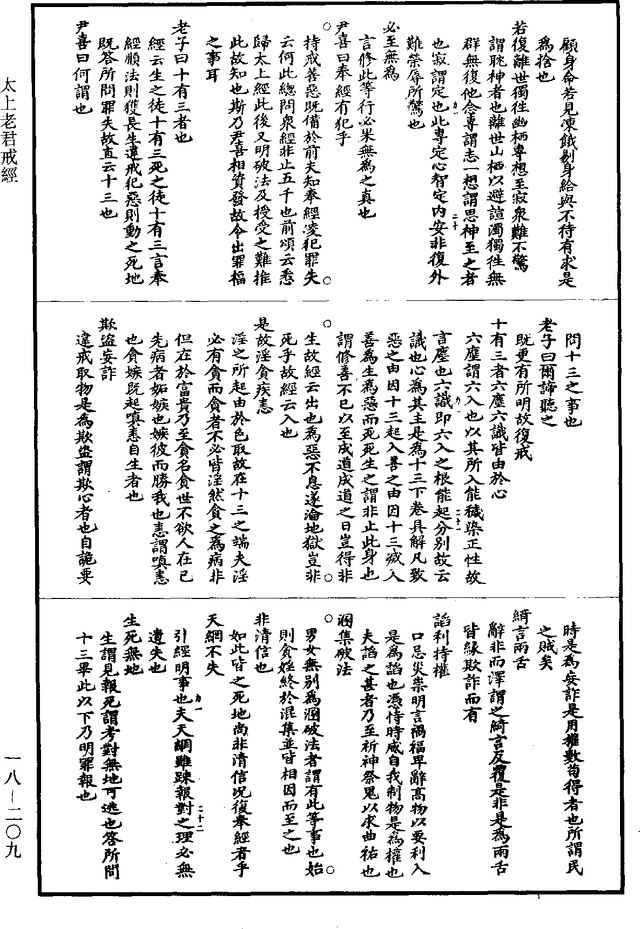 太上老君戒經
一八—二〇九
願身命若見凍餓剔身給與不待有求是
為捨也
若復離世獨徃幽栖專想至寂衆難不驚
謂耽神者也離世山栖以避諠濁獨徃無
群無復他念專謂志一想謂思神至之者
也寂謂定也此專定心智定内安非復外
難榮辱所驚也
必至無為
言修此等行必果無為之真也
尹喜曰奉經有犯乎
持戒善惡既備於前夫知奉經凌犯罪失
云何此緫問衆經非止五千也前頌云悉
歸太上經此後又明破法及授受之難推
此故知也斯乃尹喜相質發故令出罪福
之事耳
老子曰十有三者也
經云生之徒十有三死之徒十有三言奉
經順法則獲長生違戒犯惡則動之死地
既答所問罪失故直云十三也
尹喜曰何謂也
問十三之事也
老子曰爾諦聽之
既更有所明故復戒
十有三者六塵六識皆由於心
六塵謂六入也以其所入能穢染正性故
言塵也六識即六入之根能起分别故云
識也心為其主是為十三下卷具解凡致
惡之由因十三起入善之由因十三滅入
善為生為惡而死死生之謂非止此身也
謂修善不已以至成道成道之日豈得非
生故經云出也為惡不息遂淪地獄豈非
死乎故經云入也
是故淫貪疾恚
淫之所起由於色取故在十三之端夫淫
必有貪而貪者不必皆淫然貪之為病非
但在於富貴乃至貪名貪世不欲人在已
先病者妬嫉也嫉彼而勝我也恚謂嗔恚
也貪嫉既起嗔恚自生者也
欺盜妄詐
違戒取物是為欺盜謂欺心者也自詭要
時是為妄詐是用權數茍得者也所謂民
之賊矣
綺言兩舌
辭非而澤謂之綺言反覆是非是為兩舌
皆緣欺詐而有
諂利恃權
口忌災祟明言禍福卑辭高物以要利入
是為諂也憑恃時威自我制物是為權也
夫諂之甚者乃至祈神祭鬼以求曲祐也
溷集破法
男女無别為溷破法者謂有此等事也始
則貪婬終於混集並皆相因而至之也
非清信也
如此皆之死地尚非清信况復奉經者乎
天網不失
引經明事也夫天網雖踈報對之理必無
遺失也
生死無地
生謂見報死謂考對無地可逃也答所問
十三畢此以下乃明罪報也